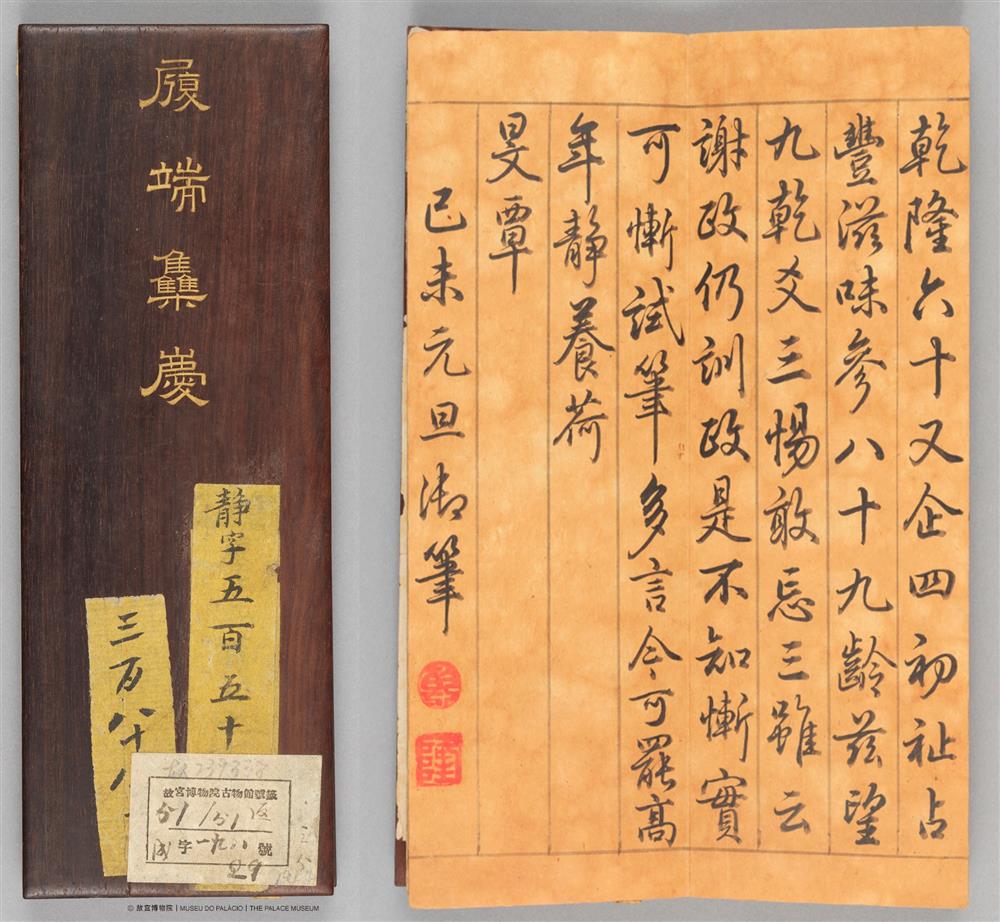 履端雧慶
静字五百五十
三百八十八
故宮博物院古物館號籤
字一九八號
© 故宮博物院 | MUSEU DO PALÁCIO | THE PALACE MUSEUM
乾隆六十又企四初祉占
豐滋味參八十九齡茲望
九乾爻三惕敢忘三雖云
謝政仍訓政是不知慚實
可慚試筆多言今可罷高
年静養荷
旻覃
己未元旦御筆